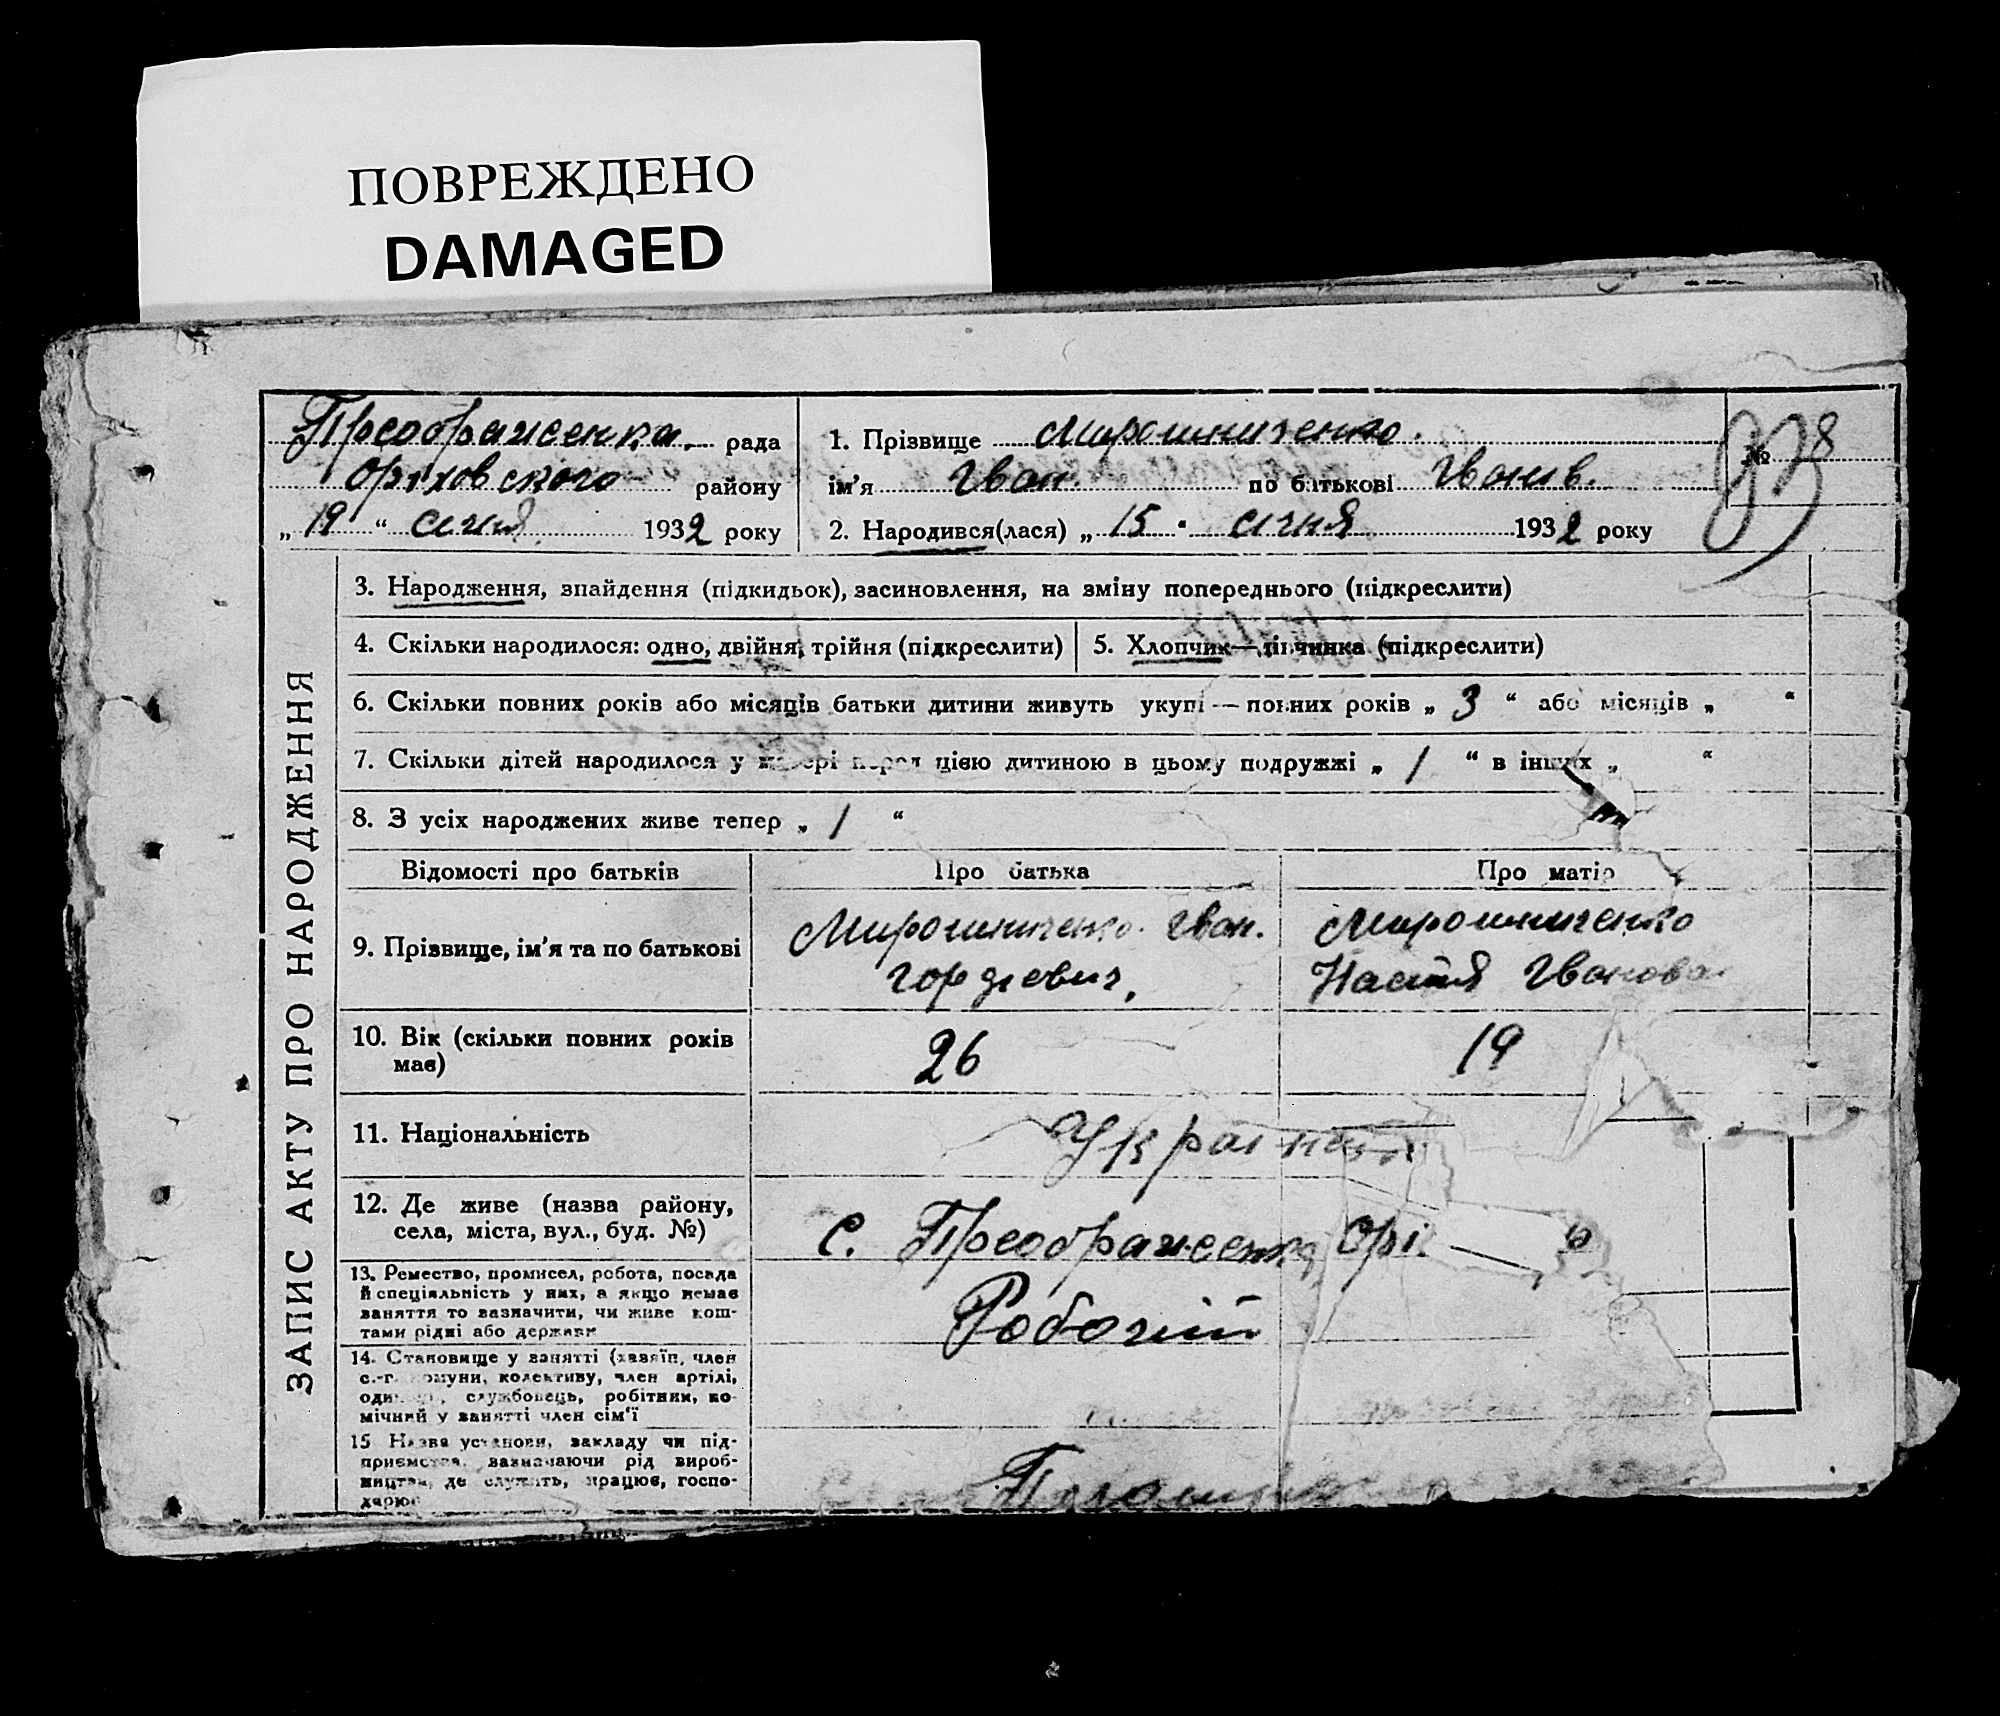 ПОВРЕЖДЕНО
DAMAGED
Преображенка рада
Оріховского району
„ 19 “ січня 1932 року
1. Прізвище Мирошниченко.
ім'я Іван. по батькові Іванів.
2. Народився(лася) „ 15 “ січня 1932 року
№
ЗАПИС АКТУ ПРО НАРОДЖЕННЯ
3. Народження, знайдення (підкидьок), засиновлення, на зміну попереднього (підкреслити)
4. Скільки народилося: одно, двійня, трійня (підкреслити)
5. Хлопчик—дівчинка (підкреслити)
6. Скільки повних років або місяців батьки дитини живуть укупі — повних років „ 3 “ або місяців „ “
7. Скільки дітей народилося у матері перед цією дитиною в цьому подружжі „ 1 “ в інших „ “
8. З усіх народжених живе тепер „ 1 “
Відомості про батьків
Про батька
Про матір
9. Прізвище, ім'я та по батькові
Мирошниченко Іван.
Гордієвич,
Мирошниченко
Настя Іванова
10. Вік (скільки повних років
має)
26
19
11. Національність
12. Де живе (назва району,
села, міста, вул., буд. №)
с. Преображенка Орі
13. Ремество, промисел, робота, посада
й спеціяльність у них, а якщо немає
заняття то зазначити, чи живе кош-
тами рідні або держави
Робочий
14. Становище у занятті (хазяїн, член
с.-г. комуни, колективу, член артілі,
службовець, робітник, по-
мічний у занятті член сім'ї
15 Назва установи, закладу чи під-
приємства, зазначаючи рід вироб-
ництва, де служить, працює, госпо-
дарює